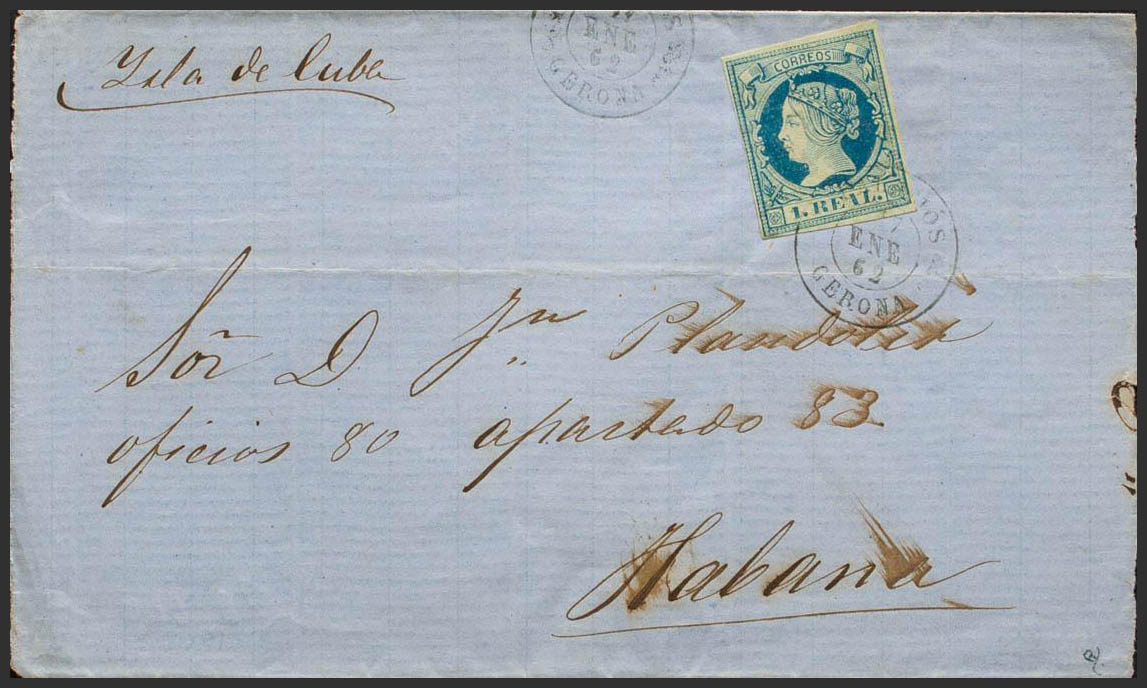 Ysla de Cuba
ENE
62
GERONA
CORREOS
1. REAL.
ENE
62
GERONA
Sor D Jn Plandolit
oficios 80 apartado 83
Habana